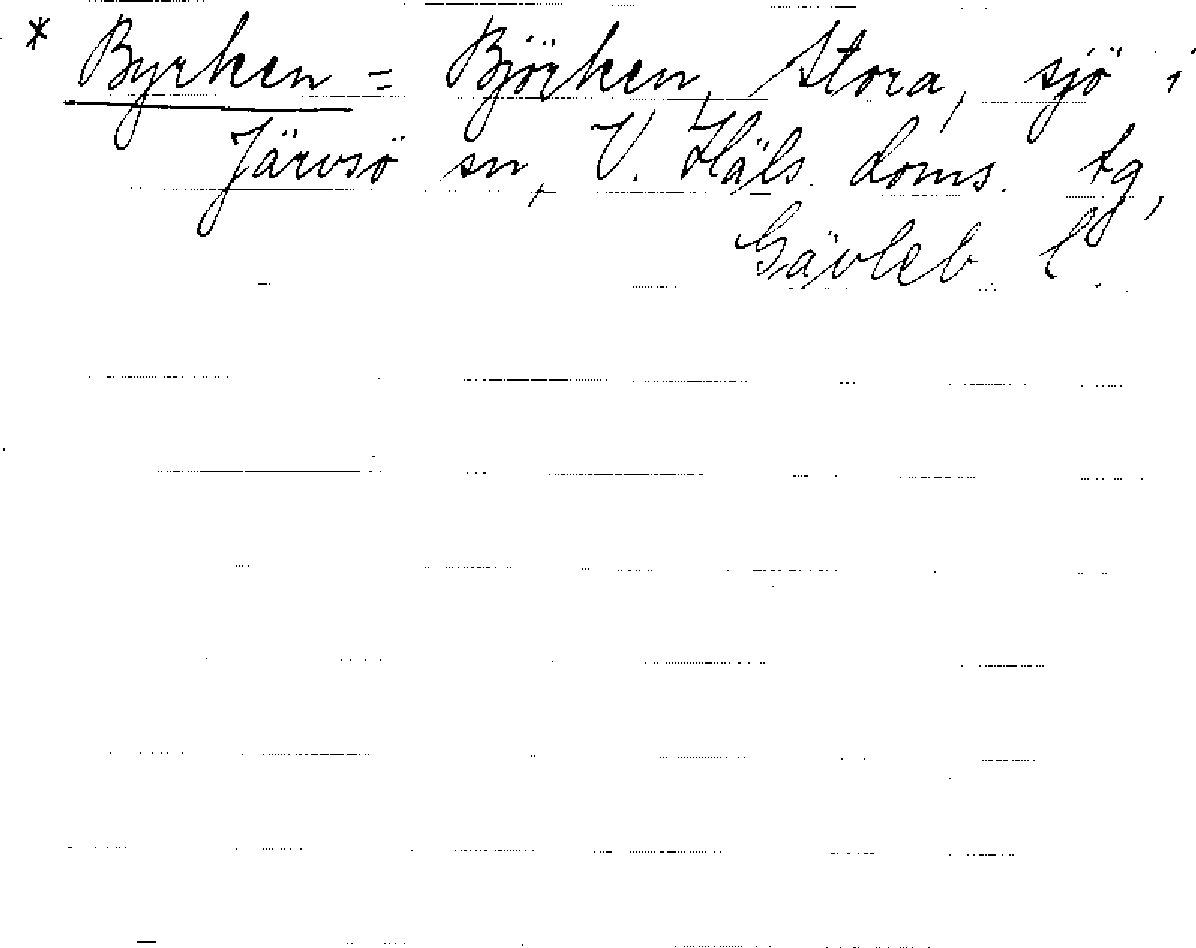 * Byrken = Björken, Stora, sjö i
Järvsö sn, V. Häls. doms. tg,
Gävleb. l.